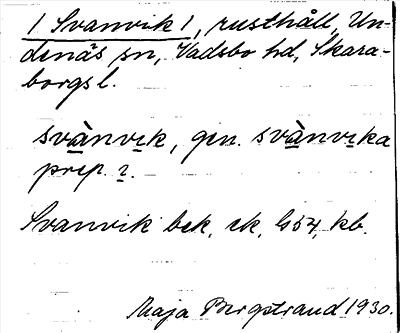 1 Svanvik 1, rusthåll, Un-
denäs sn, Vadsbo hd, Skara-
borgs l.
svànvik, gen. svànvika
prep. i.
Svanvik bek, ek, G54, kb.
Maja Bergstrand 1930.